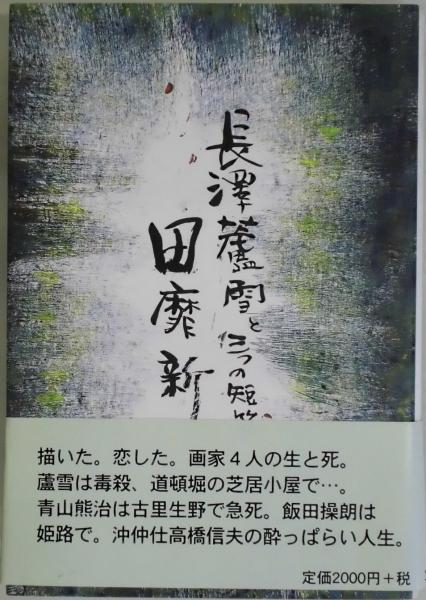 長澤蘆雪と三つの短
田靡新
描いた。恋した。画家4人の生と死。
蘆雪は毒殺、道頓堀の芝居小屋で…。
青山熊治は古里生野で急死。飯田操朗は
姫路で。沖仲仕高橋信夫の酔っぱらい人生。
定価2000円+税